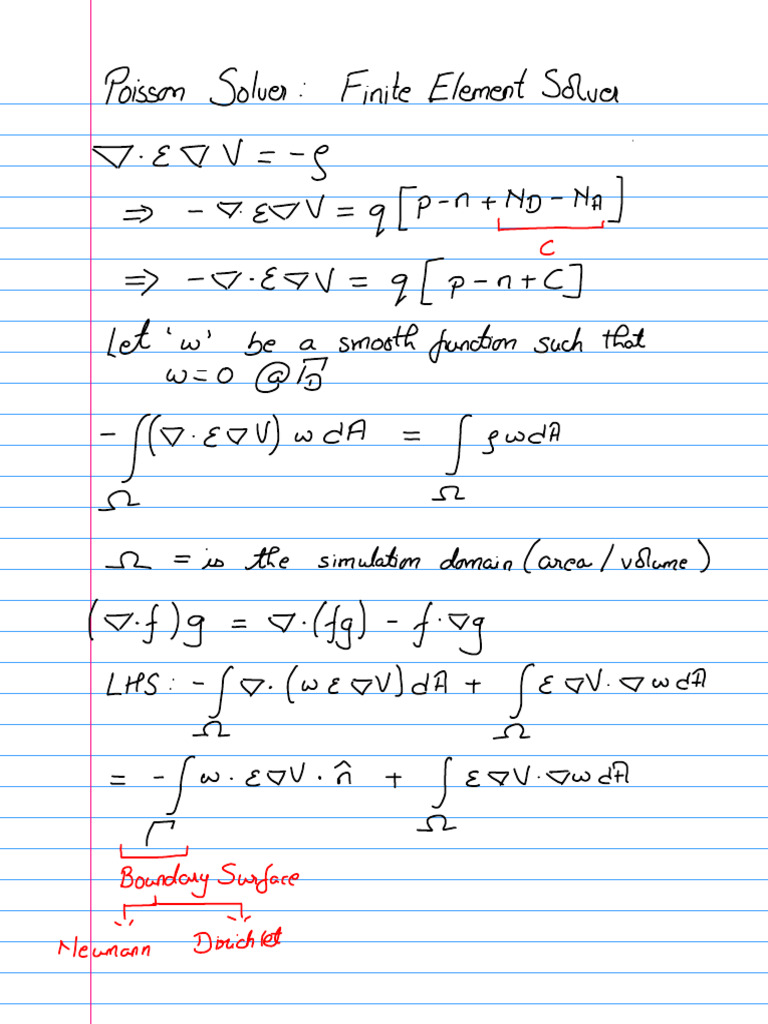 Poisson Solver: Finite Element Solver
∇·ε∇V = -ρ
⇒ -∇·ε∇V = q[p-n+N_D-N_A]
C
⇒ -∇·ε∇V = q[p-n+C]
Let 'w' be a smooth function such that
w=0 @ Γ_D
-∫_Ω (∇·ε∇V) w dA = ∫_Ω ρwdA
Ω = is the simulation domain (area/volume)
(∇·f)g = ∇·(fg) - f·∇g
LHS: -∫_Ω ∇·(wε∇V)dA + ∫_Ω ε∇V·∇wdA
= -∫_Γ w·ε∇V·n̂ + ∫_Ω ε∇V·∇wdA
Boundary Surface
Neumann Dirichlet